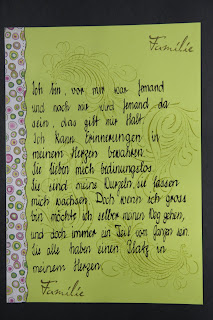 Familie
Ich bin, vor mir war jemand
und nach mir wird jemand da
sein, das gibt mir Halt.
Ich kann Erinnerungen in
meinem Herzen bewahren.
Sie lieben mich bedinungslos
Sie sind meine Wurzeln, sie lassen
mich wachsen. Doch wenn ich gross
bin möchte ich selber meinen Weg gehen,
und doch immer ein Teil vom ganzen sein.
Sie alle haben einen Platz in
meinem Herzen.
Familie